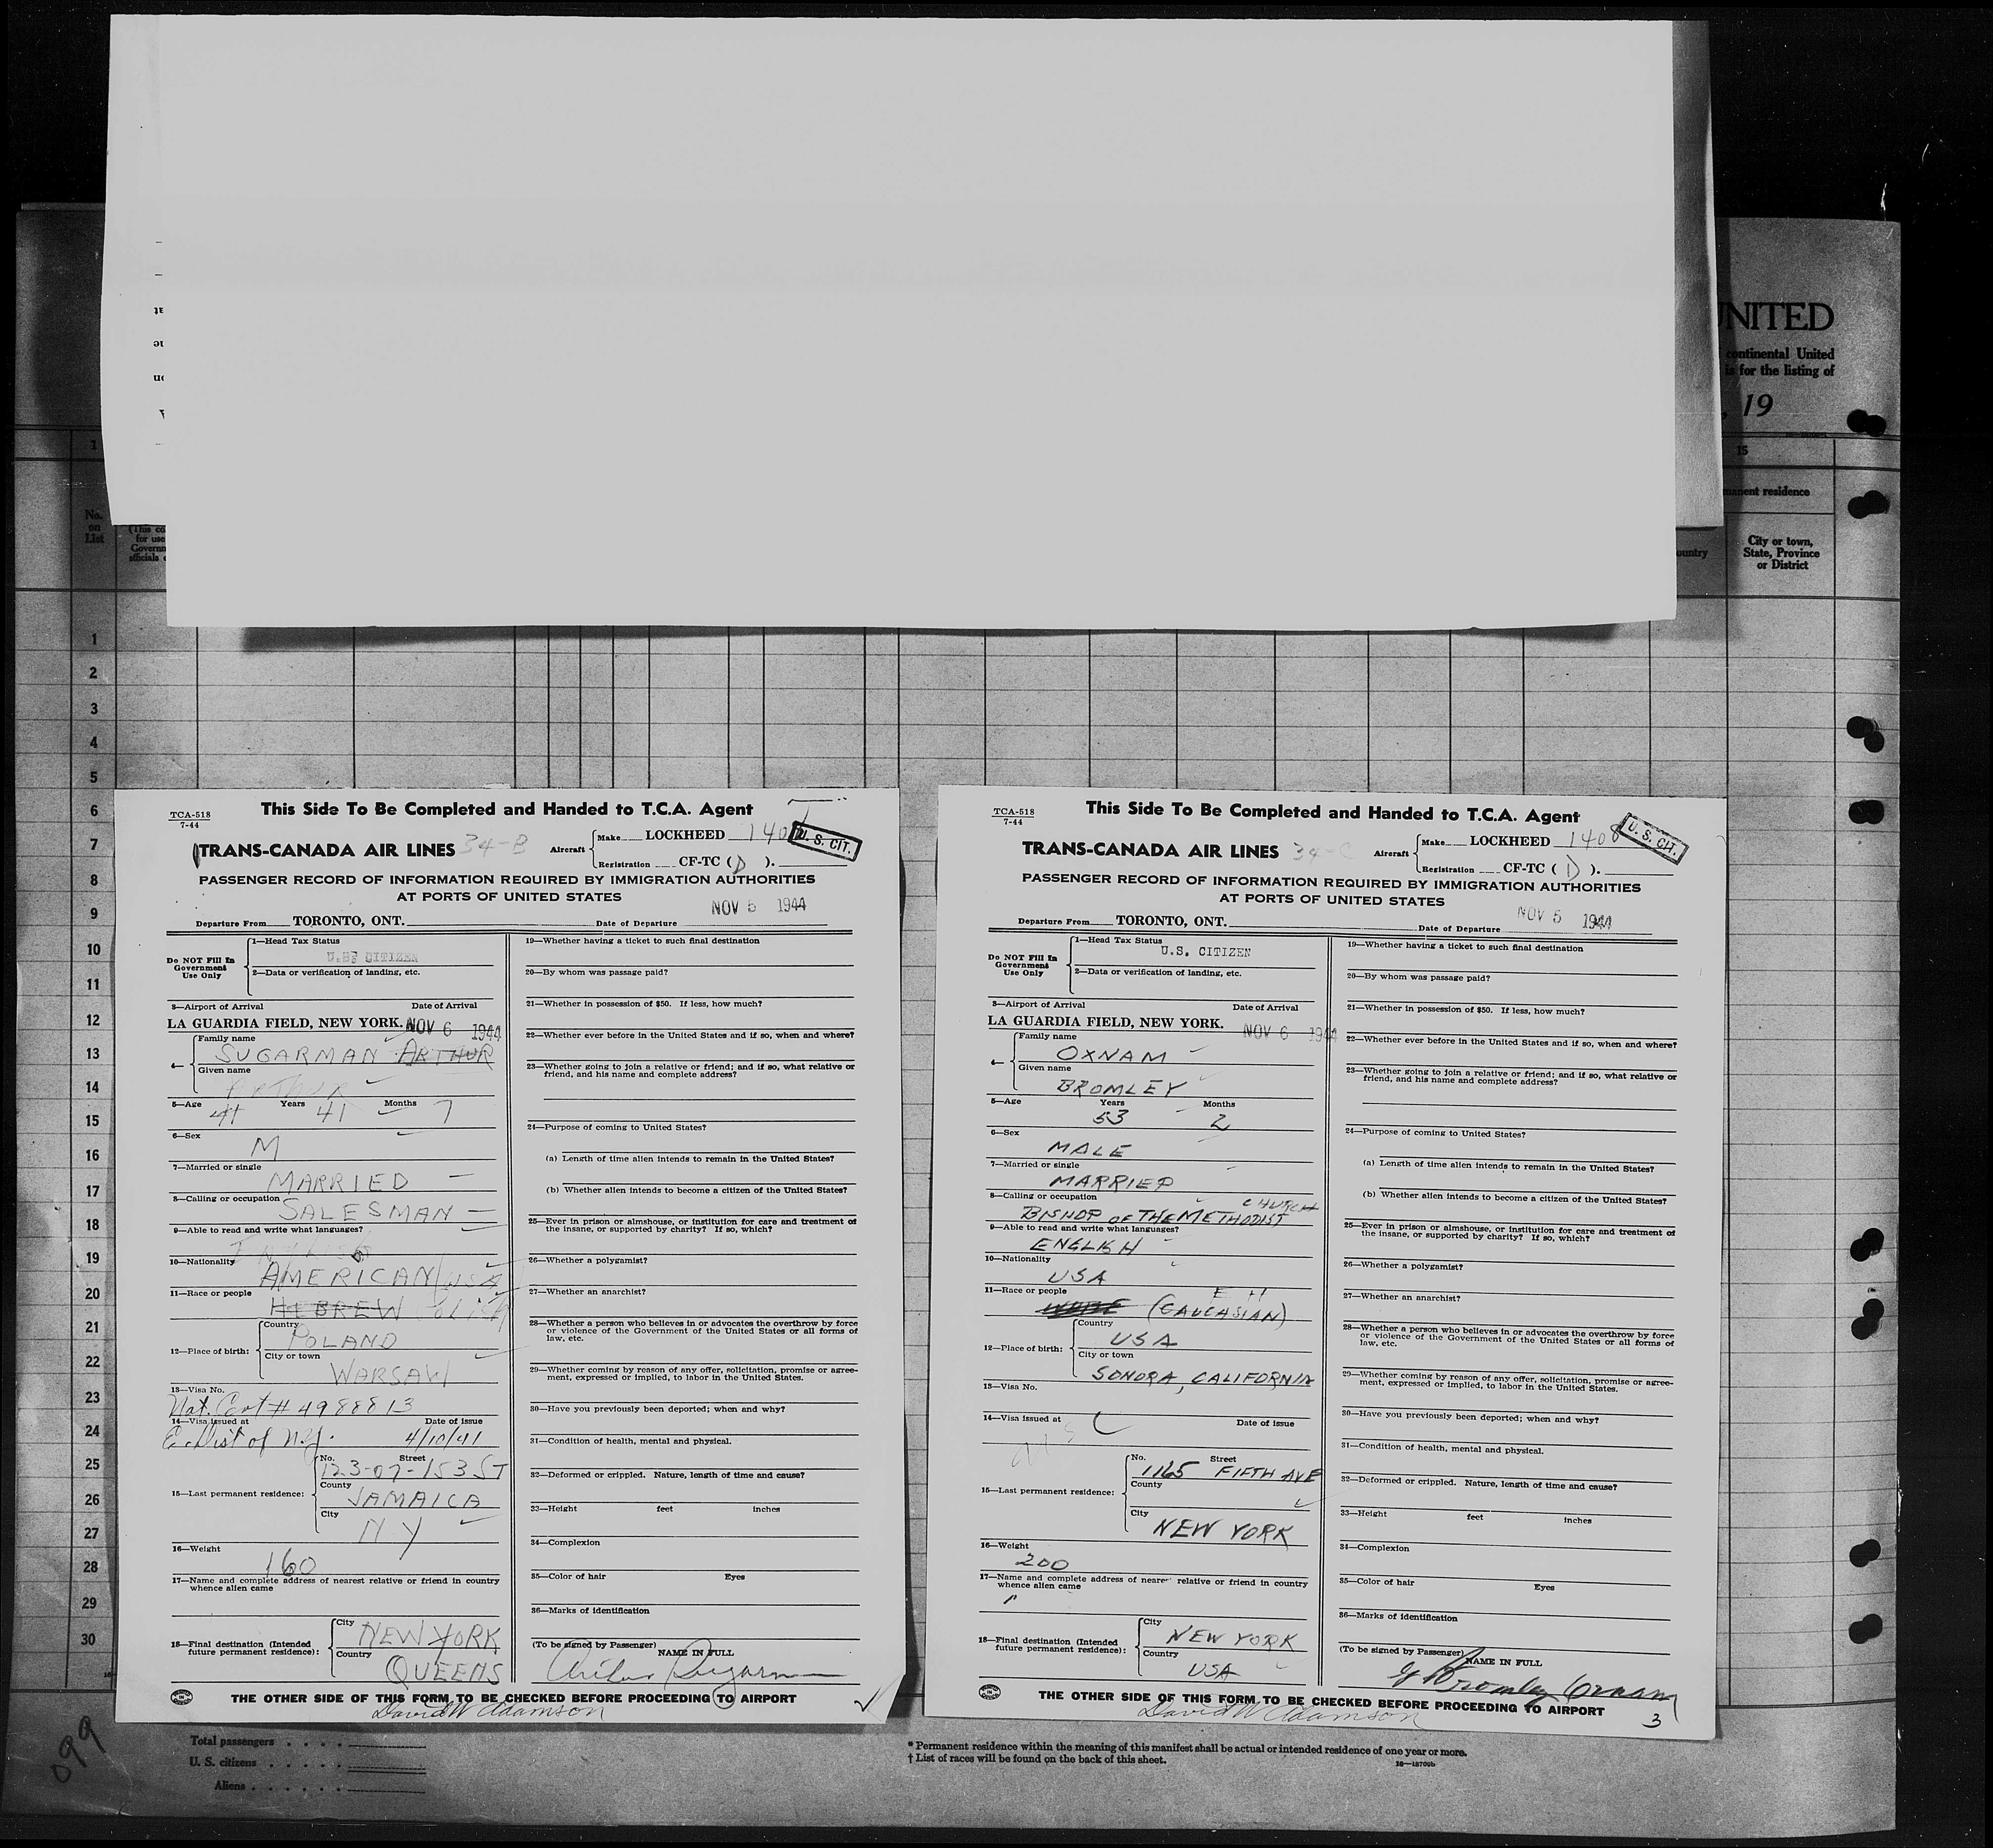 UNITED
continental United
is for the listing of
, 19
1
15
No.
on
List
for use
Govern
officials
manent residence
City or town,
State, Province
or District
ountry
1
2
3
4
5
6
7
8
9
10
11
12
13
14
15
16
17
18
19
20
21
22
23
24
25
26
27
28
29
30
TCA-518
7-44
This Side To Be Completed and Handed to T.C.A. Agent
TRANS-CANADA AIR LINES 34-B
Aircraft
Make LOCKHEED 140
U. S. CIT.
Registration CF-TC ( D ).
PASSENGER RECORD OF INFORMATION REQUIRED BY IMMIGRATION AUTHORITIES
AT PORTS OF UNITED STATES
Departure From TORONTO, ONT. Date of Departure NOV 5 1944
Do NOT Fill In
Government
Use Only
1—Head Tax Status
CITIZEN
2—Data or verification of landing, etc.
3—Airport of Arrival Date of Arrival
LA GUARDIA FIELD, NEW YORK. NOV 6 1944
4—
Family name
SUGARMAN ARTHUR
Given name
ARTHUR
5—Age Years Months
41 41 7
6—Sex
M
7—Married or single
MARRIED
8—Calling or occupation
SALESMAN
9—Able to read and write what languages?
ENGLISH
10—Nationality
AMERICAN/USA
11—Race or people
HEBREW POLISH
12—Place of birth:
Country
POLAND
City or town
WARSAW
13—Visa No.
Nat. Cert # 4988813
14—Visa issued at Date of issue
E. Dist of N.Y. 4/10/41
15—Last permanent residence:
No. Street
123-07-153 ST
County
JAMAICA
City
N Y
16—Weight
160
17—Name and complete address of nearest relative or friend in country
whence alien came
18—Final destination (Intended
future permanent residence):
City
NEW YORK
Country
QUEENS
19—Whether having a ticket to such final destination
20—By whom was passage paid?
21—Whether in possession of $50. If less, how much?
22—Whether ever before in the United States and if so, when and where?
23—Whether going to join a relative or friend; and if so, what relative or
friend, and his name and complete address?
24—Purpose of coming to United States?
(a) Length of time alien intends to remain in the United States?
(b) Whether alien intends to become a citizen of the United States?
25—Ever in prison or almshouse, or institution for care and treatment of
the insane, or supported by charity? If so, which?
26—Whether a polygamist?
27—Whether an anarchist?
28—Whether a person who believes in or advocates the overthrow by force
or violence of the Government of the United States or all forms of
law, etc.
29—Whether coming by reason of any offer, solicitation, promise or agree-
ment, expressed or implied, to labor in the United States.
30—Have you previously been deported; when and why?
31—Condition of health, mental and physical.
32—Deformed or crippled. Nature, length of time and cause?
33—Height feet inches
34—Complexion
35—Color of hair Eyes
36—Marks of identification
(To be signed by Passenger) NAME IN FULL
Arthur Sugarman
THE OTHER SIDE OF THIS FORM TO BE CHECKED BEFORE PROCEEDING TO AIRPORT
David W Adamson
TCA-518
7-44
This Side To Be Completed and Handed to T.C.A. Agent
TRANS-CANADA AIR LINES 34-C
Aircraft
Make LOCKHEED 1408
U. S. CIT.
Registration CF-TC ( D ).
PASSENGER RECORD OF INFORMATION REQUIRED BY IMMIGRATION AUTHORITIES
AT PORTS OF UNITED STATES
Departure From TORONTO, ONT. Date of Departure NOV 5 1944
Do NOT Fill In
Government
Use Only
1—Head Tax Status
U.S. CITIZEN
2—Data or verification of landing, etc.
3—Airport of Arrival Date of Arrival
LA GUARDIA FIELD, NEW YORK. NOV 6 1944
4—
Family name
OXNAM
Given name
BROMLEY
5—Age Years Months
53 2
6—Sex
MALE
7—Married or single
MARRIED
8—Calling or occupation CHURCH
BISHOP OF THE METHODIST
9—Able to read and write what languages?
ENGLISH
10—Nationality
USA
11—Race or people
(CAUCASIAN)
12—Place of birth:
Country
USA
City or town
SONORA, CALIFORNIA
13—Visa No.
14—Visa issued at Date of issue
15—Last permanent residence:
No. Street
1165 FIFTH AVE
County
City
NEW YORK
16—Weight
200
17—Name and complete address of nearest relative or friend in country
whence alien came
18—Final destination (Intended
future permanent residence):
City
NEW YORK
Country
USA
19—Whether having a ticket to such final destination
20—By whom was passage paid?
21—Whether in possession of $50. If less, how much?
22—Whether ever before in the United States and if so, when and where?
23—Whether going to join a relative or friend; and if so, what relative or
friend, and his name and complete address?
24—Purpose of coming to United States?
(a) Length of time alien intends to remain in the United States?
(b) Whether alien intends to become a citizen of the United States?
25—Ever in prison or almshouse, or institution for care and treatment of
the insane, or supported by charity? If so, which?
26—Whether a polygamist?
27—Whether an anarchist?
28—Whether a person who believes in or advocates the overthrow by force
or violence of the Government of the United States or all forms of
law, etc.
29—Whether coming by reason of any offer, solicitation, promise or agree-
ment, expressed or implied, to labor in the United States.
30—Have you previously been deported; when and why?
31—Condition of health, mental and physical.
32—Deformed or crippled. Nature, length of time and cause?
33—Height feet inches
34—Complexion
35—Color of hair Eyes
36—Marks of identification
(To be signed by Passenger) NAME IN FULL
G Bromley Oxnam
THE OTHER SIDE OF THIS FORM TO BE CHECKED BEFORE PROCEEDING TO AIRPORT
David W Adamson
3
099
Total passengers
U. S. citizens
Aliens
* Permanent residence within the meaning of this manifest shall be actual or intended residence of one year or more.
† List of races will be found on the back of this sheet.
16—18700b